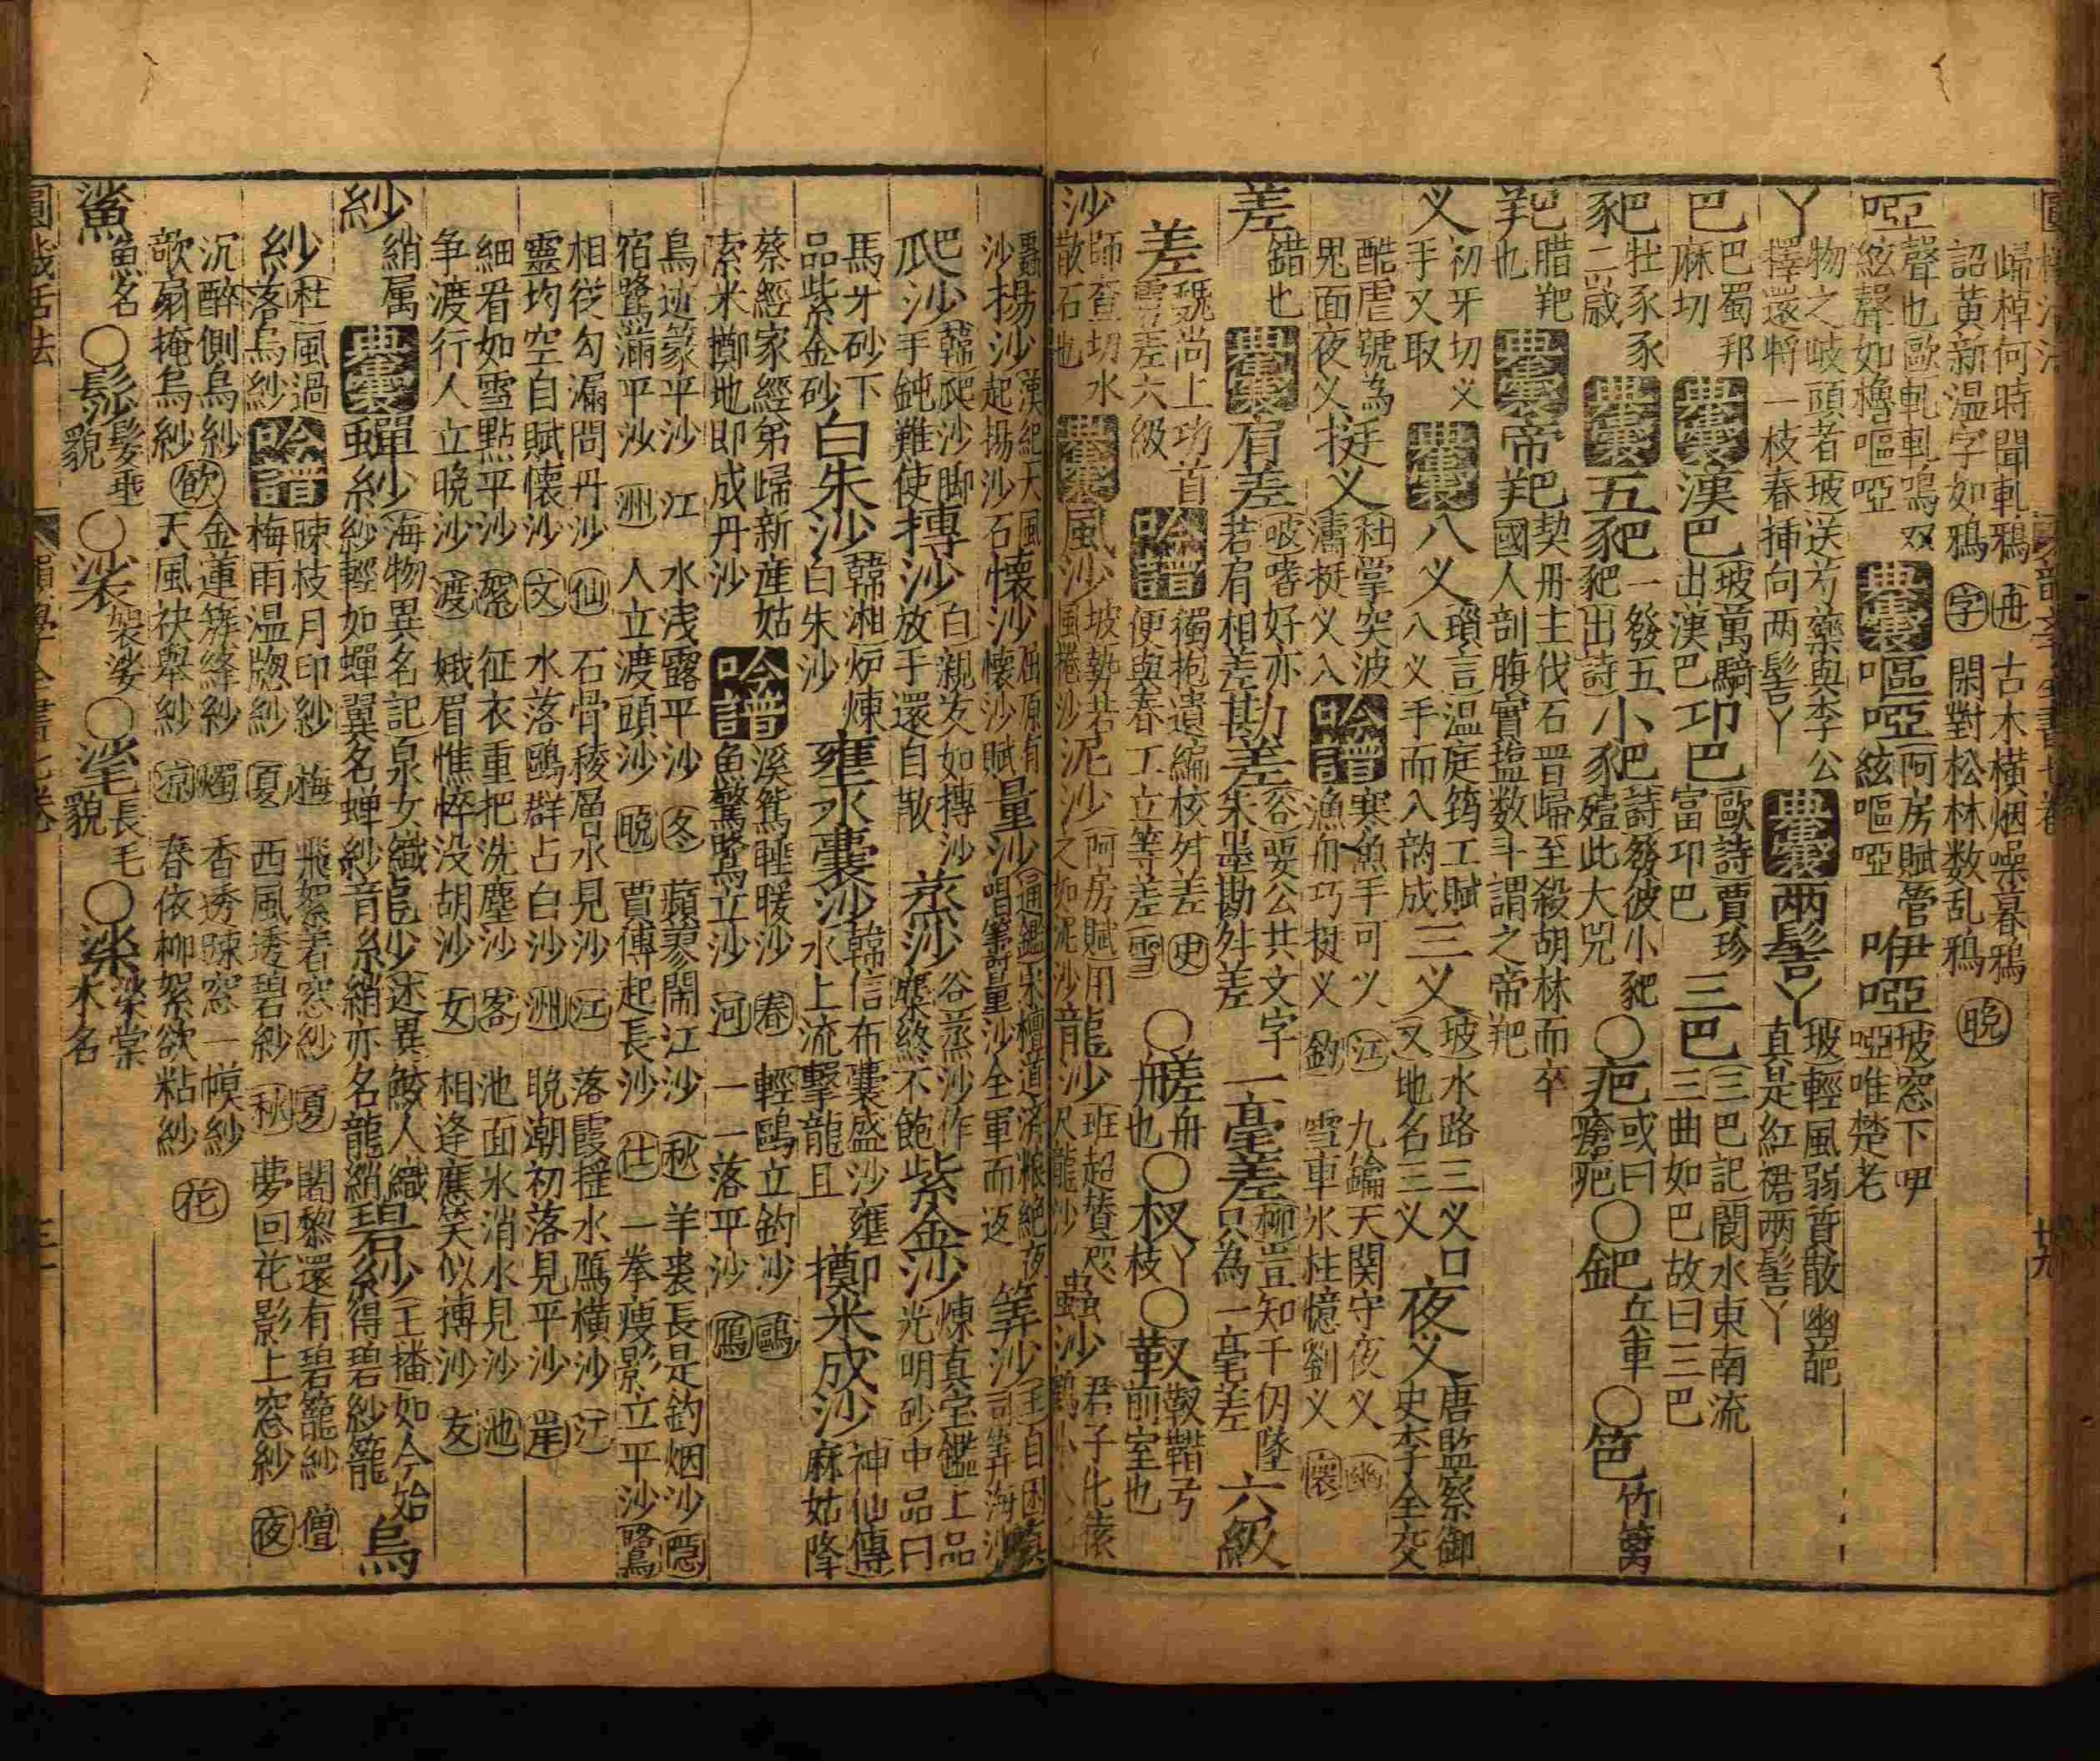 歸棹何時聞軋鴉 舟 古木橫烟噪暮鴉
詔黃新温字如鴉 字 閑對松林数乱鴉 晚
啞 聲也歐軋軋鳴双
絃聲如櫓嘔啞 典裏 嘔啞 阿房賦管
絃嘔啞 咿啞 坡窓下咿
啞唯楚老
丫 物之岐頭者坡送芍藥與李公
擇還將一枝春挿向两髻丫 典裏 兩髻丫 坡輕風弱
真是紅裙两髻丫
巴 巴蜀邦
麻切 典裏 漢巴 坡萬騎
出漢巴 卭巴 歐詩賈珍
富卭巴 三巴 三巴記閬水東南流
三曲如巴故曰三巴
豝 牡豕豕
二嵗 典裏 五豝 一發五
豝出詩 小豝 詩發彼小豝
殪此大兕 ○疤 或曰
瘡疤 ○鈀 兵車 ○笆 竹籬
羓 腊羓
也 典裏 帝羓 契丹主伐石晋歸至殺胡林而卒
國人剖腹實塩数斗謂之帝羓
叉 初牙切叉
手叉取 典裏 八叉 瑣言温庭筠工賦
八叉手而八韵成 三叉 坡水路三叉口
叉地名三叉 夜叉 唐監察御
史李全交
酷虐號為
鬼面夜叉 挺叉 杜掌突波
濤挺叉入 吟譜 寒魚手可叉 江 九鑰天関守夜叉 幽
漁舟巧挺叉 釣 雪車氷柱憶劉叉 懷
差 錯也 典裏 肩差 坡嗜好亦
若肩相差 勘差 谷要公共文字
朱墨勘舛差 一毫差 柳豈知千仞墜
只為一毫差 六級
差 魏尚上功首
雪差六級 吟譜 獨抱遺編校舛差 史
便與春工立等差 雪 ○艖 舟
也 ○杈 丫
枝 ○靫 靫鞴弓
前室也
沙 師查切水
散石也 典裏 風沙 坡勢若
風捲沙 泥沙 阿房賦用
之如泥沙 龍沙 班超賛咫
尺龍沙 蟲沙 君子化猿
沙 揚沙 漢紀大風
起揚沙石 懷沙 屈原有
懷沙賦 量沙 通鑑宋檀道済粮絶夜
唱籌量沙全軍而返 筭沙
爬沙 韓爬沙脚
手鈍難使 摶沙 白親友如摶沙
放手還自散 蒸沙 谷蒸沙作
糜終不飽 紫金沙 煉真宝鑑上品
光明砂中品曰
馬牙砂下
品紫金砂 白朱沙 韓湘炉煉
白朱沙 壅水囊沙 韓信布囊盛沙壅
水上流擊龍且 擲米成沙 神仙傳
麻姑降
蔡經家經弟歸新産姑
索米擲地即成丹沙 吟譜 溪鴛睡暖沙 春 輕鷗立釣沙 鷗
魚驚鷺立沙 河 一一落平沙 鴈
鳥迹篆平沙 江 水浅露平沙 冬 蘋蓼閙江沙 秋 羊裘長是釣烟沙 隱
宿鷺滿平沙 洲 人立渡頭沙 晚 賈傅起長沙 仕 一拳痩影立平沙 鷺
相從勾漏問丹沙 仙 石骨稜層水見沙 江 落霞擁水鴈橫沙 江
靈均空自賦懷沙 文 水落鷗群占白沙 洲 晚潮初落見平沙 岸
細看如雪點平沙 絮 征衣重把洗塵沙 客 池面氷消水見沙 池
争渡行人立晚沙 渡 娥眉憔悴没胡沙 女 相逢應笑似摶沙 友
紗 綃属 典裏 蟬紗 海物異名記泉女織
紗輕如蟬翼名蝉紗音糸 龍紗 述異鮫人織
綃亦名龍綃 碧紗 王播如今始
得碧紗籠 烏
紗 杜風過
落烏紗 吟譜 疎枝月印紗 梅 飛絮着窓紗 夏 闍黎還有碧籠紗 僧
梅雨温牕紗 夏 西風透碧紗 秋 夢回花影上窓紗 夜
沉醉側烏紗 飲 金蓮簇絳紗 燭 香透疎窓一幌紗 花
欹扇掩烏紗 天風袂舉紗 凉 春依柳絮欲粘紗
鯊 魚名 ○髿 髮垂
貌 ○裟 袈裟 ○毟 長毛
貌 ○桬 桬棠
木名